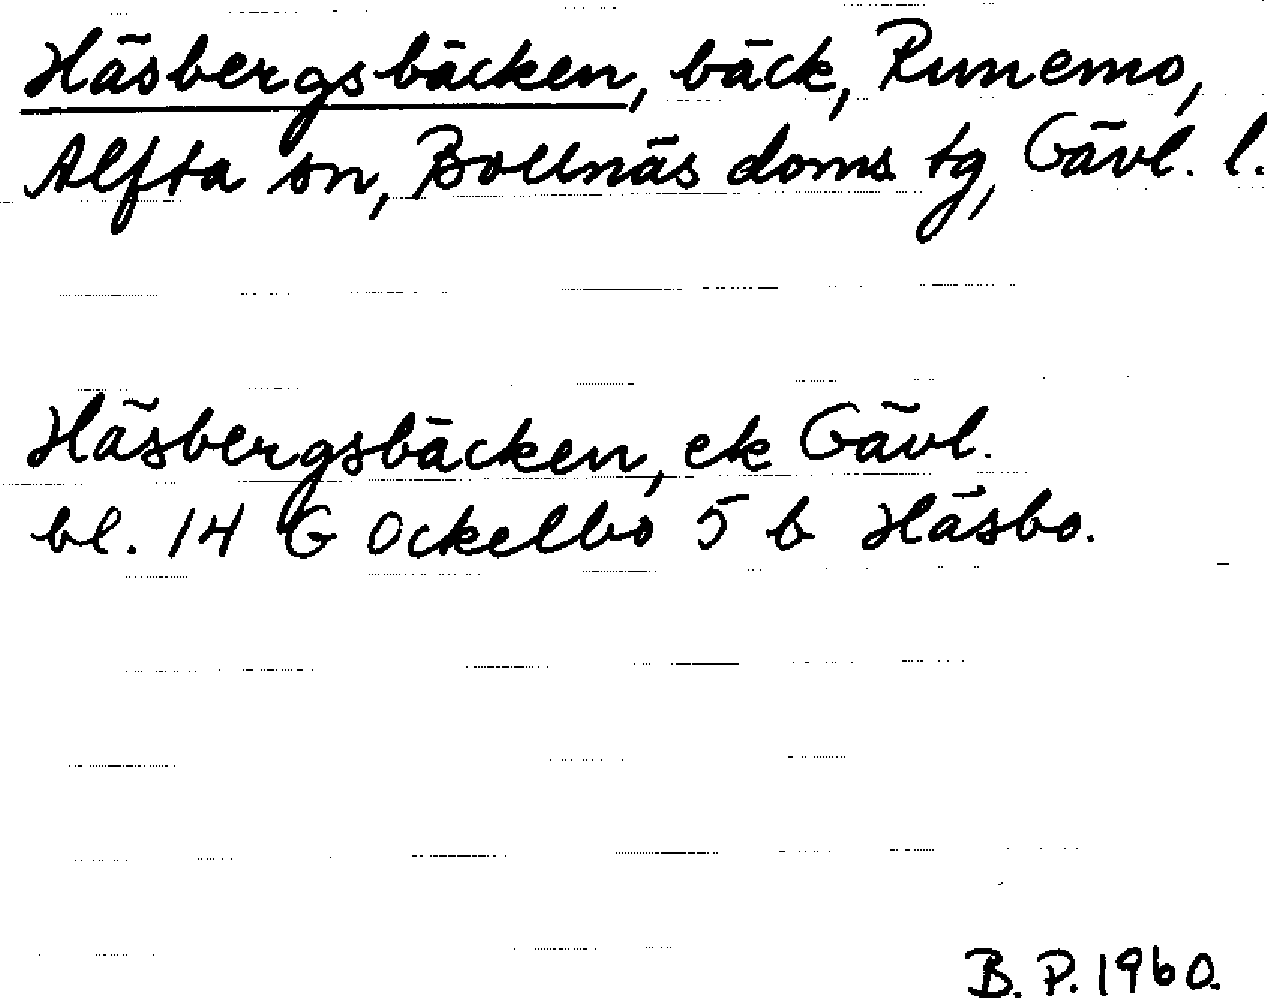 Häsbergsbäcken, bäck, Runemo,
Alfta sn, Bollnäs doms. tg, Gävl. l.
Häsbergsbäcken, ek Gävl.
bl. 14 G Ockelbo 5 b Häsbo.
B. P. 1960.